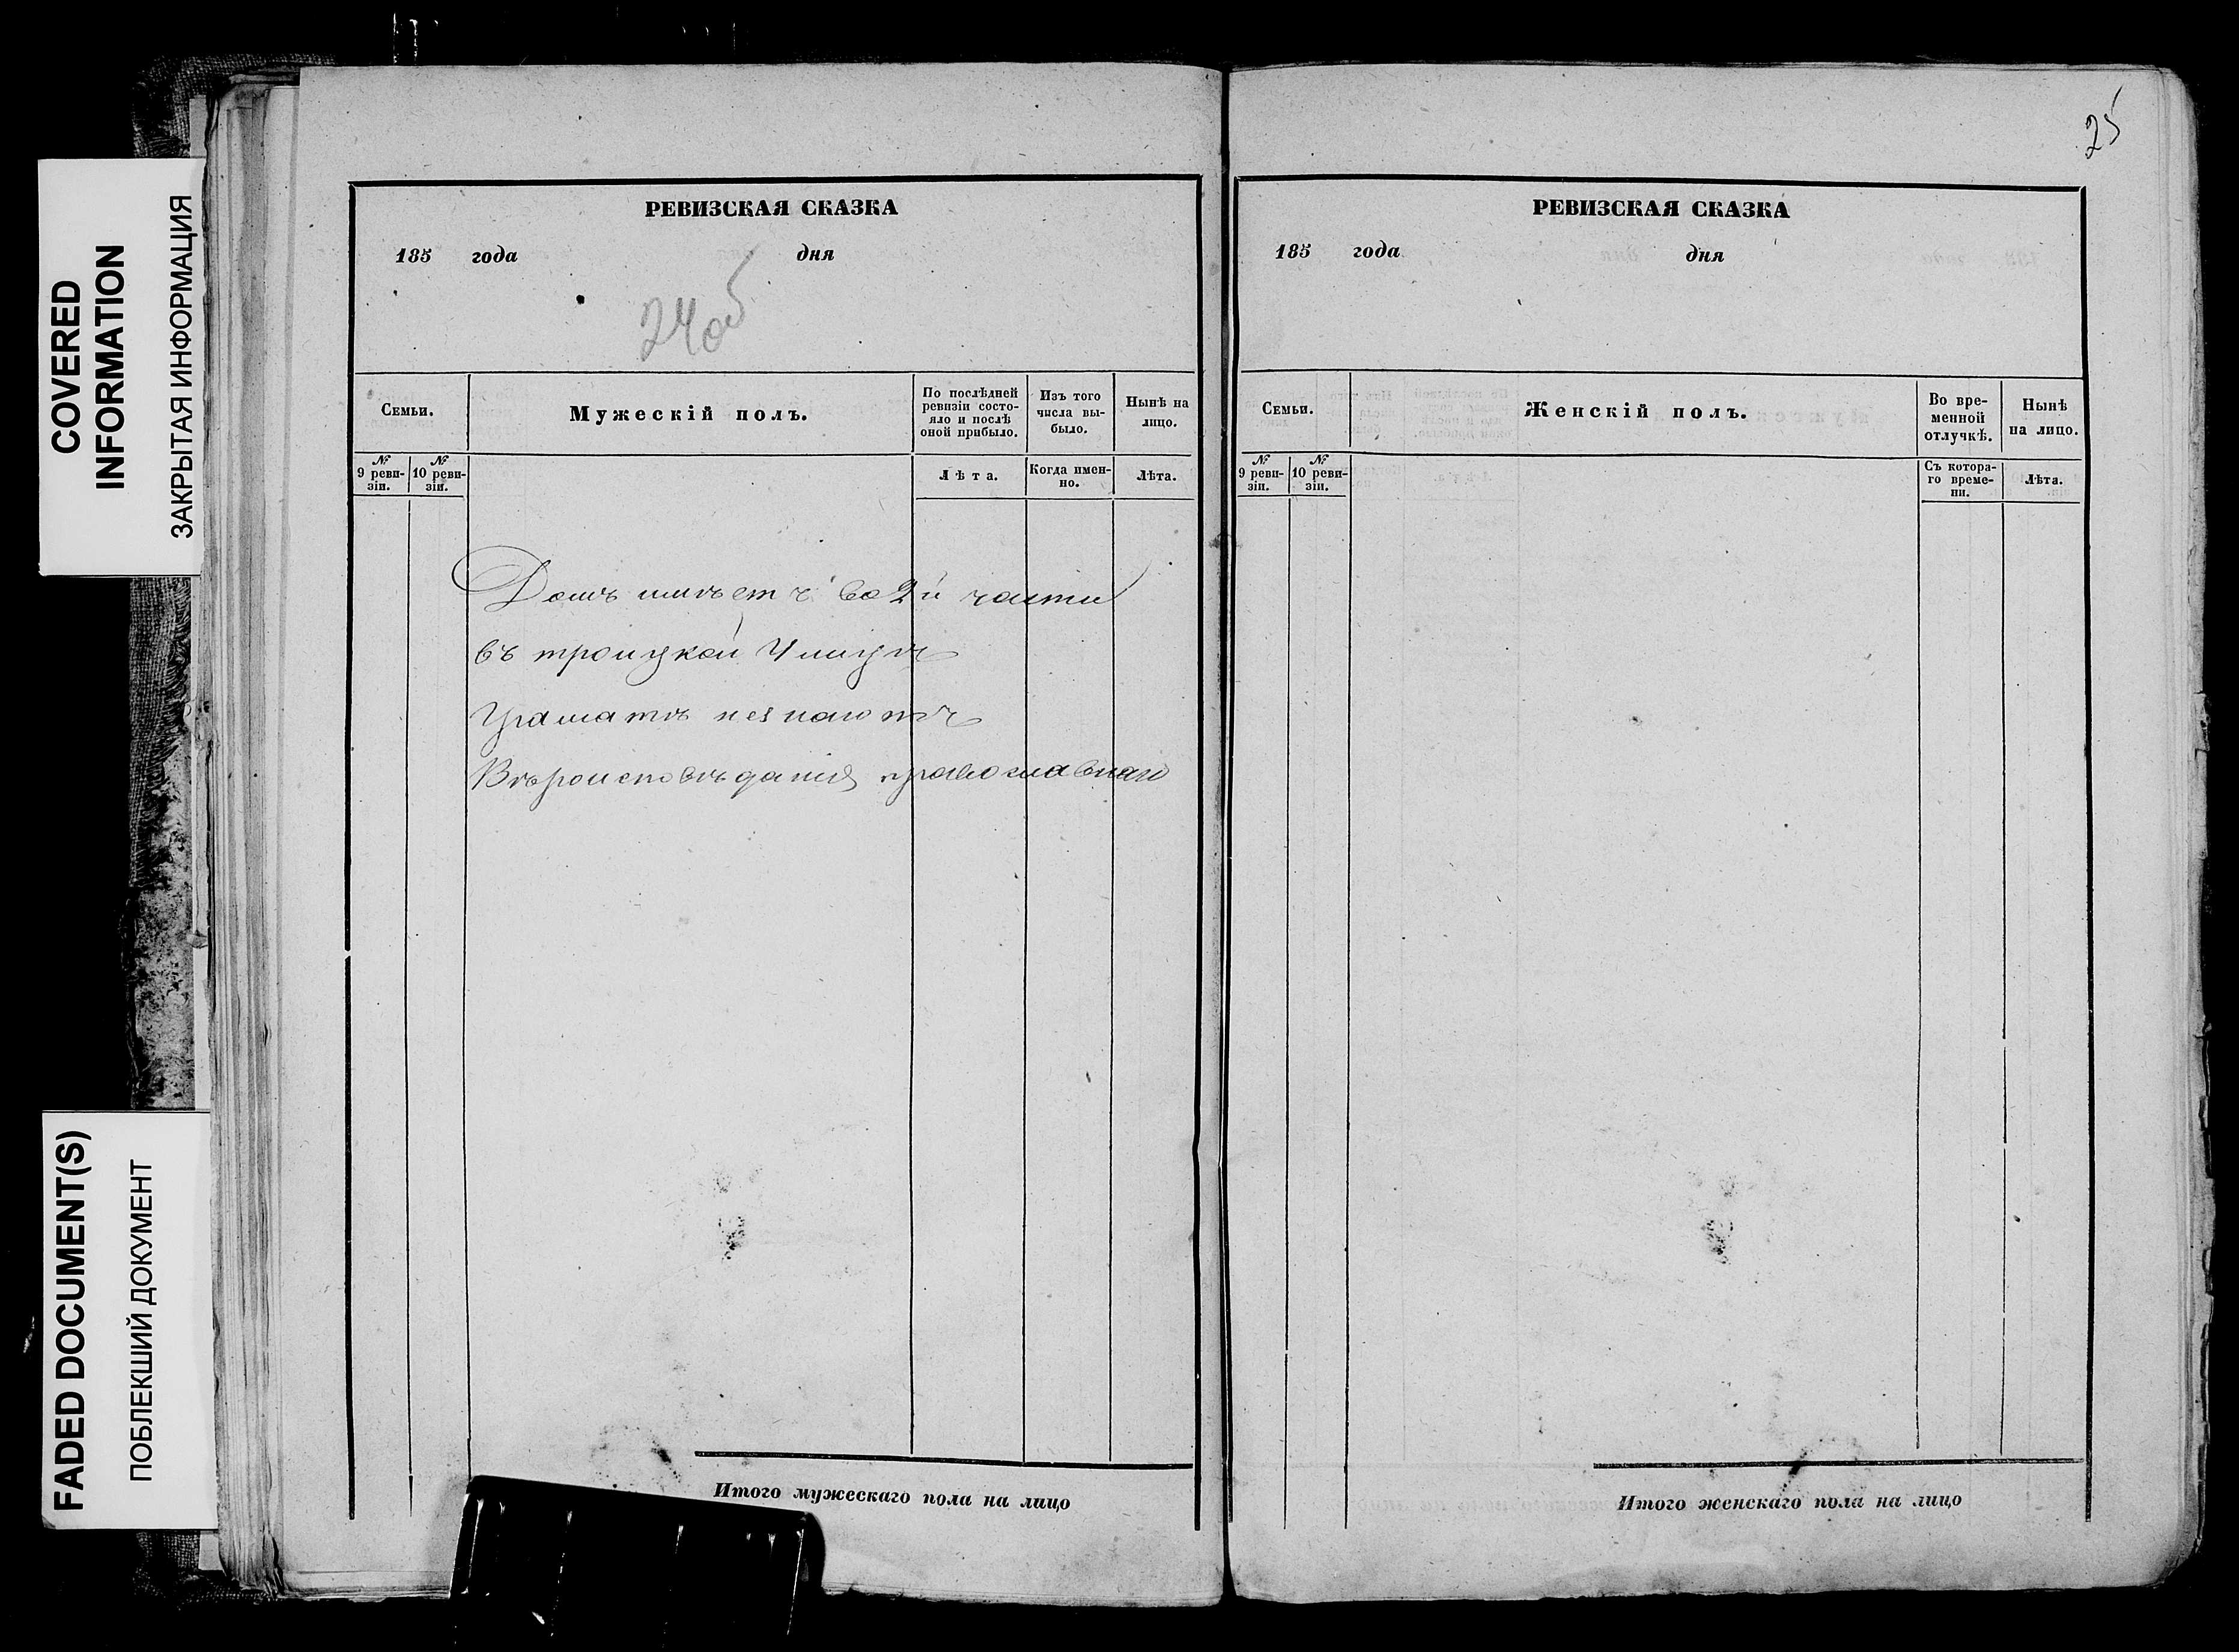 COVERED
INFORMATION
ЗАКРЫТАЯ ИНФОРМАЦИЯ
FADED DOCUMENT(S)
ПОБЛЕКШИЙ ДОКУМЕНТ
РЕВИЗСКАЯ СКАЗКА
185 года дня
24об
Семьи.
Мужескій полъ.
По послѣдней
ревизіи состо-
яло и послѣ
оной прибыло.
Изъ того
числа вы-
было.
Нынѣ на
лицо.
№
9 реви-
зіи.
№
10 реви-
зіи.
Лѣта.
Когда имен-
но.
Лѣта.
Домъ имѣетъ во 2й части
въ троицкой Улицѣ
Граматѣ незнаютъ
Вѣроисповѣданія православнаго
Итого мужескаго пола на лицо
25
РЕВИЗСКАЯ СКАЗКА
185 года дня
Семьи.
Женскій полъ.
Во вре-
менной
отлучкѣ.
Нынѣ
на лицо.
№
9 реви-
зіи.
№
10 реви-
зіи.
Съ котора-
го време-
ни.
Лѣта.
Итого женскаго пола на лицо